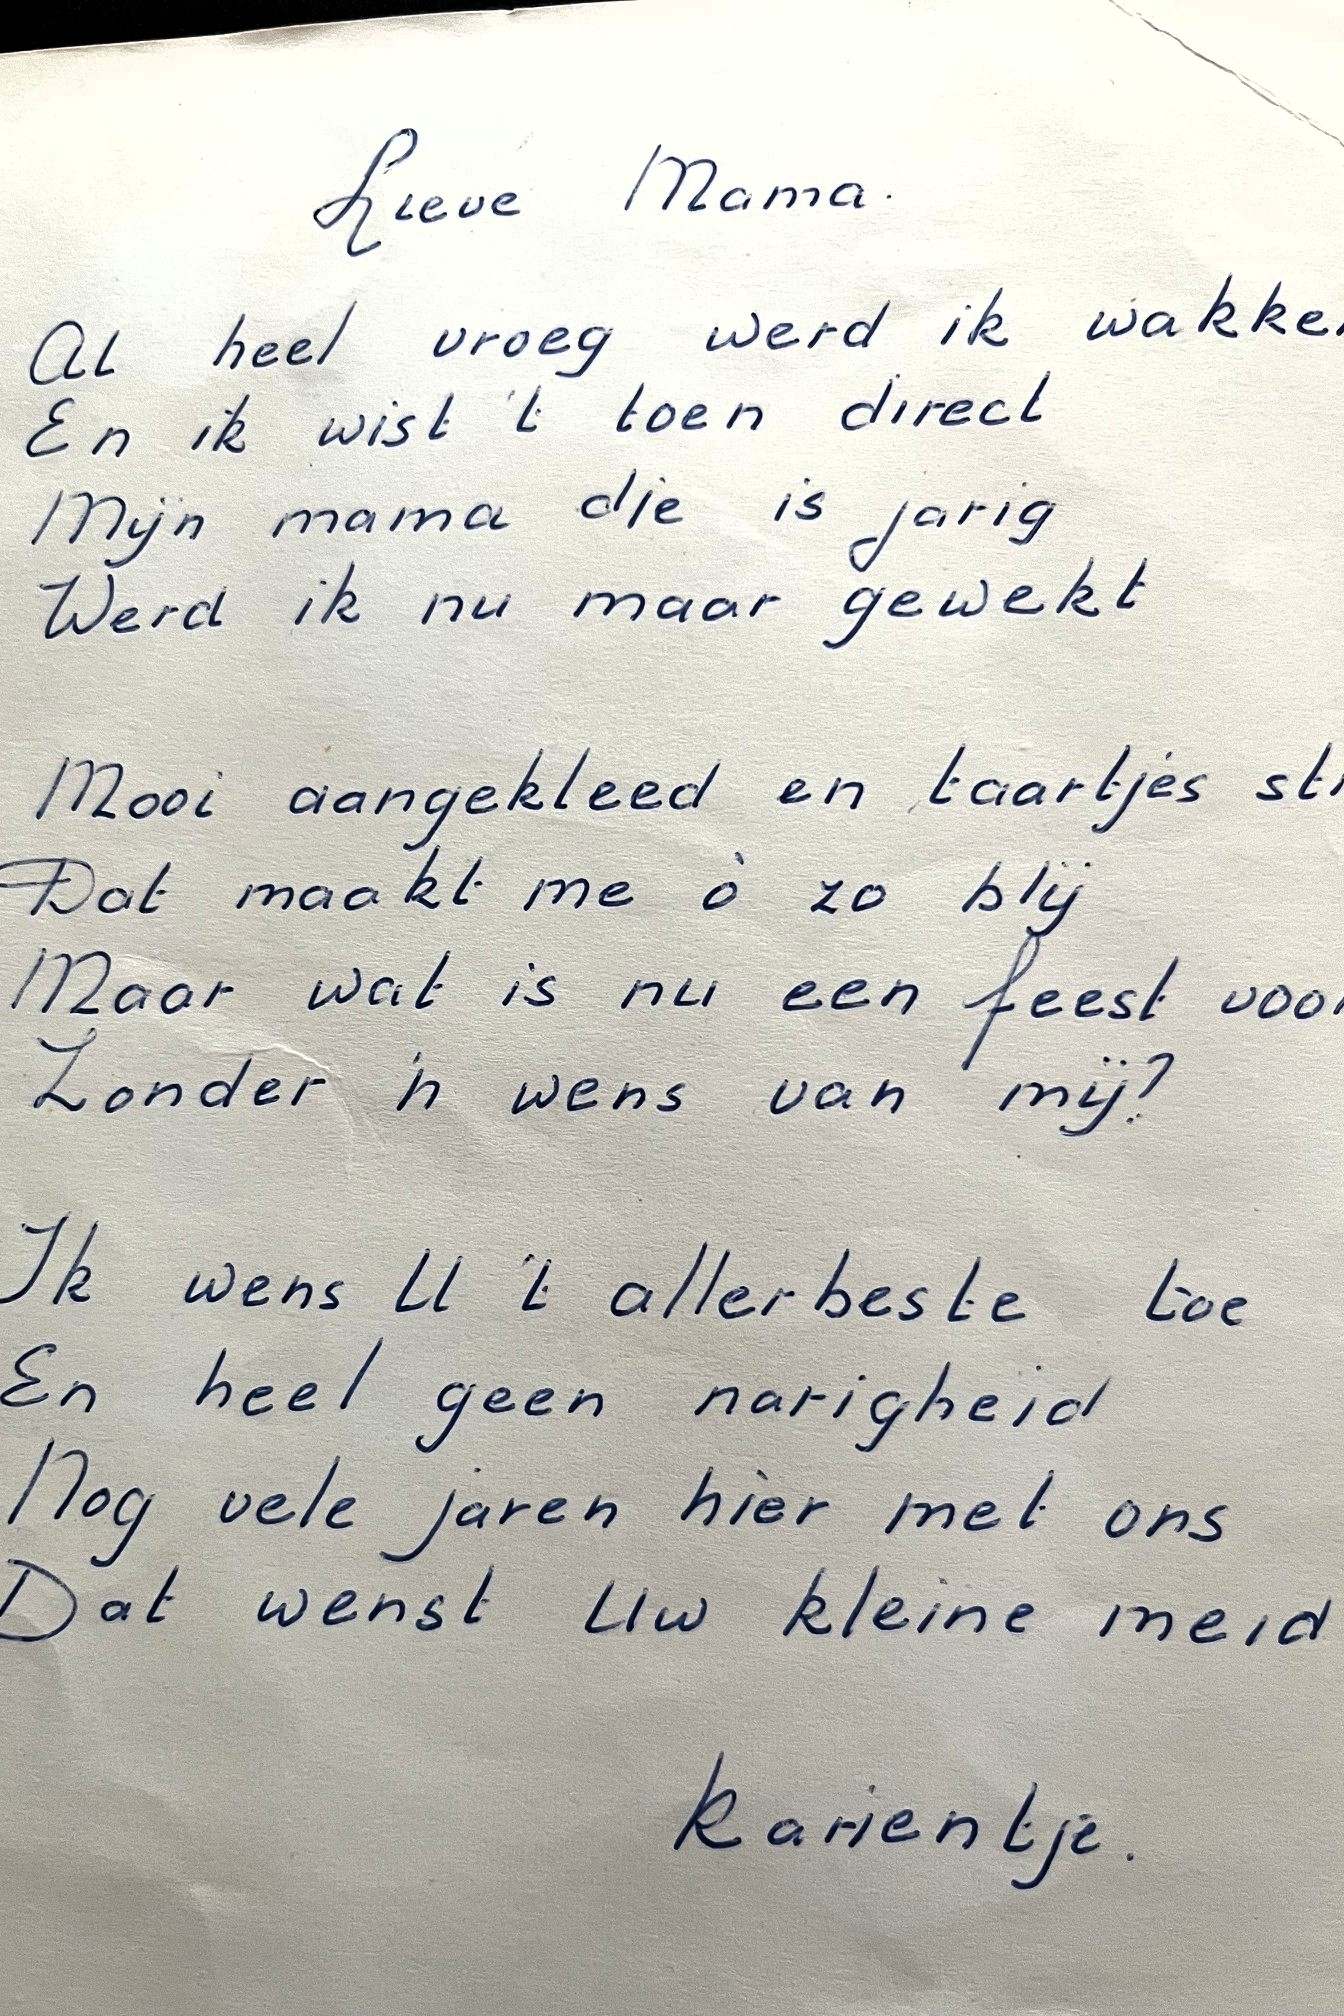 Lieve Mama.
Al heel vroeg werd ik wakker
En ik wist 't toen direct
Mijn mama die is jarig
Werd ik nu maar gewekt
Mooi aangekleed en taartjes
Dat maakt me ò zo blij
Maar wat is nu een feest voor
Zonder 'n wens van mij?
Ik wens U 't allerbeste toe
En heel geen narigheid
Nog vele jaren hier met ons
Dat wenst Uw kleine meid
Karientje.